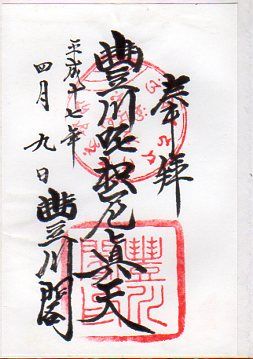 奉拝
豊川吒枳尼眞天
平成十七年
四月九日
豊川閣